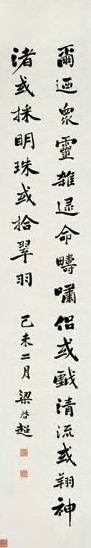 爾迺衆靈雜遝命疇嘯侶或戲清流或翔神
渚或採明珠或拾翠羽
己未二月梁啓超